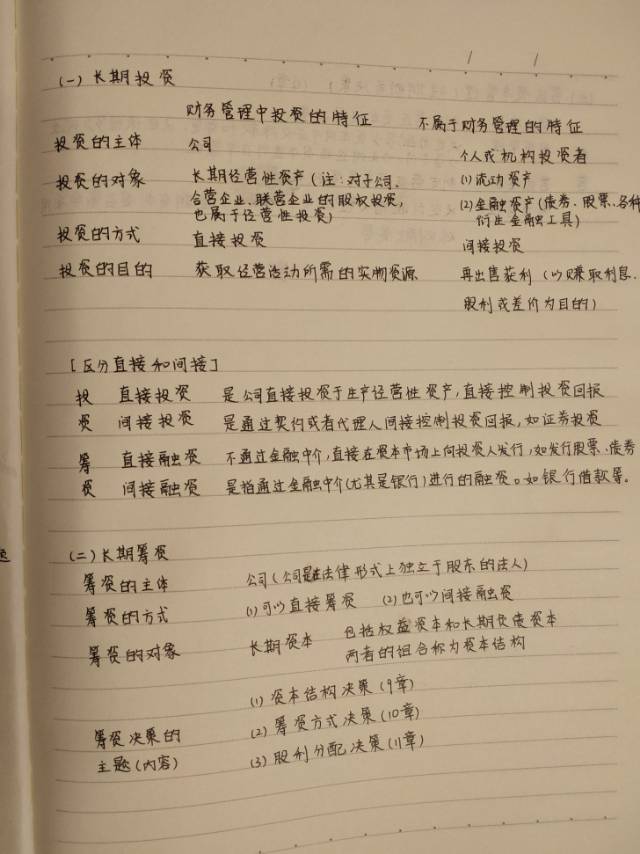 (一) 长期投资
财务管理中投资的特征 不属于财务管理的特征
投资的主体 公司 个人或机构投资者
投资的对象 长期经营性资产 (注:对子公司、 (1) 流动资产
合营企业、联营企业的股权投资, (2) 金融资产(债券、股票、各种
也属于经营性投资) 衍生金融工具)
投资的方式 直接投资 间接投资
投资的目的 获取经营活动所需的实物资源 再出售获利 (以赚取利息、
股利或差价为目的)
[区分直接和间接]
投 直接投资 是公司直接投资于生产经营性资产,直接控制投资回报
资 间接投资 是通过契约或者代理人间接控制投资回报,如证券投资
筹 直接融资 不通过金融中介,直接在资本市场上向投资人发行,如发行股票、债券
资 间接融资 是指通过金融中介(尤其是银行)进行的融资。如银行借款等。
(二) 长期筹资
筹资的主体 公司(公司是在法律形式上独立于股东的法人)
筹资的方式 (1) 可以直接筹资 (2) 也可以间接融资
筹资的对象 长期资本 包括权益资本和长期负债资本
两者的组合称为资本结构
(1) 资本结构决策(9章)
筹资决策的 (2) 筹资方式决策(10章)
主题(内容) (3) 股利分配决策(11章)